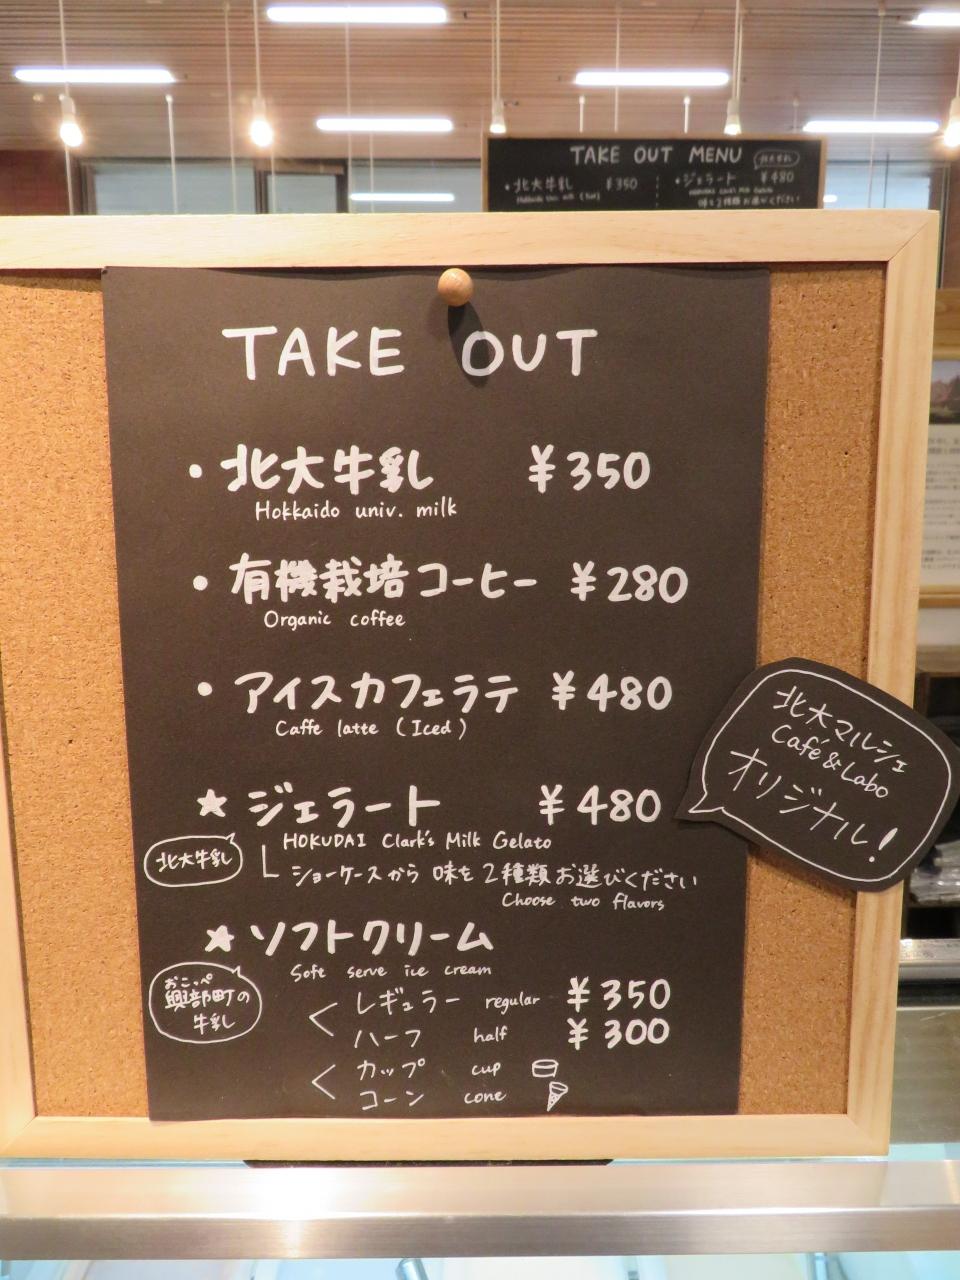 TAKE OUT MENU
北大牛乳
・北大牛乳 ¥350
・ジェラート ¥480
味を2種類お選びください
TAKE OUT
・北大牛乳 ¥350
Hokkaido univ. milk
・有機栽培コーヒー ¥280
Organic coffee
・アイスカフェラテ ¥480
Caffe latte (Iced)
★ジェラート ¥480
HOKUDAI Clark's Milk Gelato
北大牛乳
ショーケースから 味を2種類お選びください
Choose two flavors
北大マルシェ
Café & Labo
オリジナル!
★ソフトクリーム
Soft serve ice cream
おこっぺ
興部町の
牛乳
レギュラー regular ¥350
ハーフ half ¥300
カップ cup
コーン cone